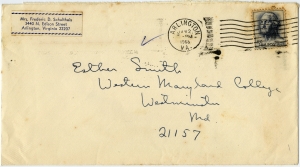 Mrs. Frederic D. Schultheis
3440 N. Edison Street
Arlington, Virginia 22207
ARLINGTON
VA.
Esther Smith
Western Maryland College
Westminster
Md
21157